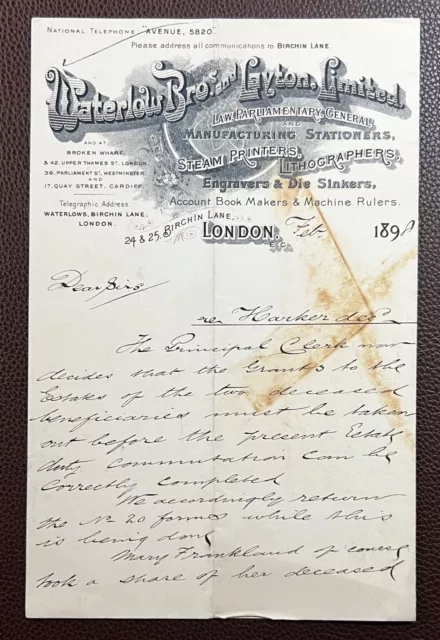 NATIONAL TELEPHONE "AVENUE, 5820"
Please address all communications to BIRCHIN LANE.
Waterlow Bros. and Layton, Limited.
LAW, PARLIAMENTARY, GENERAL
AND
MANUFACTURING STATIONERS,
STEAM PRINTERS, LITHOGRAPHERS,
Engravers & Die Sinkers,
Account Book Makers & Machine Rulers.
AND AT
BROKEN WHARF,
& 42, UPPER THAMES ST. LONDON.
36, PARLIAMENT ST, WESTMINSTER.
AND
17, QUAY STREET, CARDIFF.
Telegraphic Address
WATERLOWS, BIRCHIN LANE,
LONDON.
24 & 25, BIRCHIN LANE,
LONDON, Feb 1898
E.C.
Dear Sirs
re Harker decd
The Principal Clerk now
decides that the Grants to the
Estates of the two deceased
beneficiaries must be taken
out before the present Estate
duty commutation can be
correctly completed
We accordingly return
the No 20 forms while this
is being done
Mary Frankland of course
took a share of her deceased